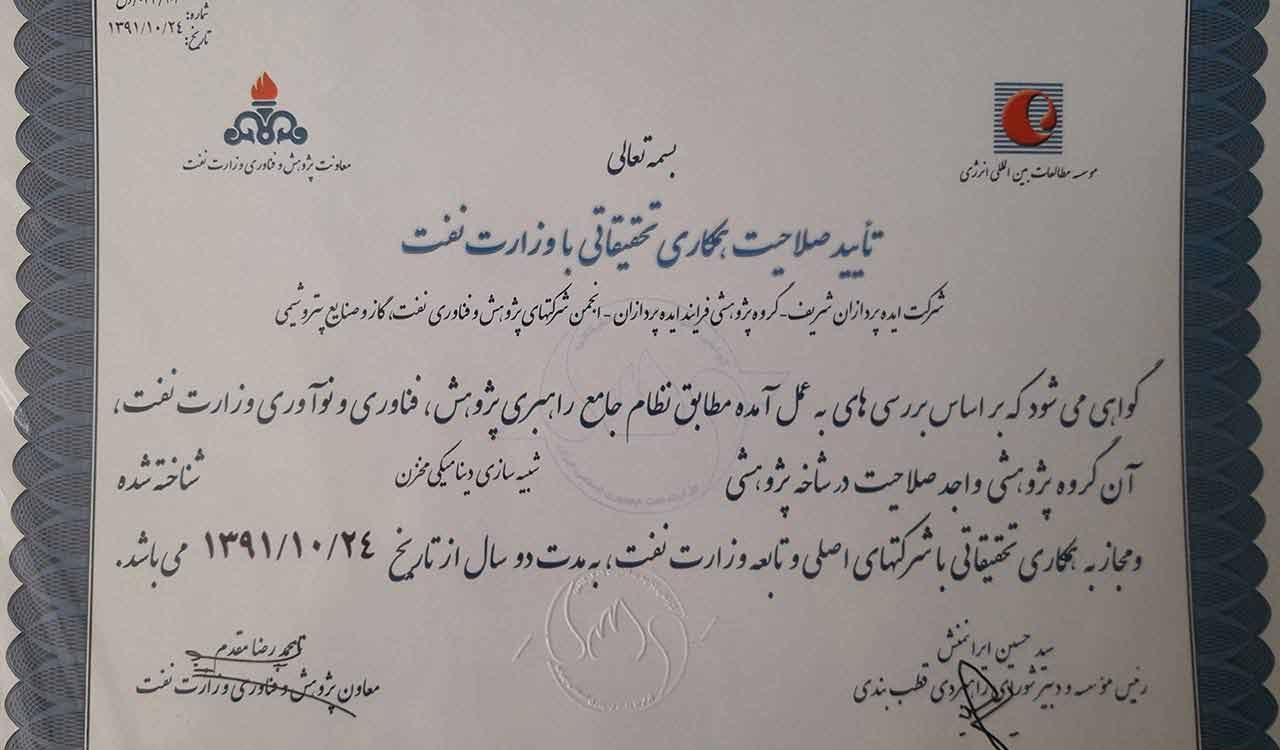 شماره:
تاریخ: ۱۳۹۱/۱۰/۲۴
معاونت پژوهش و فناوری وزارت نفت
موسسه مطالعات بین المللی انرژی
بسمه تعالی
تأیید صلاحیت همکاری تحقیقاتی با وزارت نفت
شرکت ایده پردازان شریف - گروه پژوهشی فرایند ایده پردازان - انجمن شرکتهای پژوهش و فناوری نفت، گاز و صنایع پتروشیمی
گواهی می شود که بر اساس بررسی های به عمل آمده مطابق نظام جامع راهبری پژوهش، فناوری و نوآوری وزارت نفت،
آن گروه پژوهشی واجد صلاحیت در شاخه پژوهشی شبیه سازی دینامیکی مخزن شناخته شده
و مجاز به همکاری تحقیقاتی با شرکتهای اصلی و تابعه وزارت نفت، به مدت دو سال از تاریخ ۱۳۹۱/۱۰/۲۴ می باشد.
سید حسین ایرانمنش
رئیس مؤسسه و دبیر شورای راهبردی قطب بندی
محمد رضا مقدم
معاون پژوهش و فناوری وزارت نفت